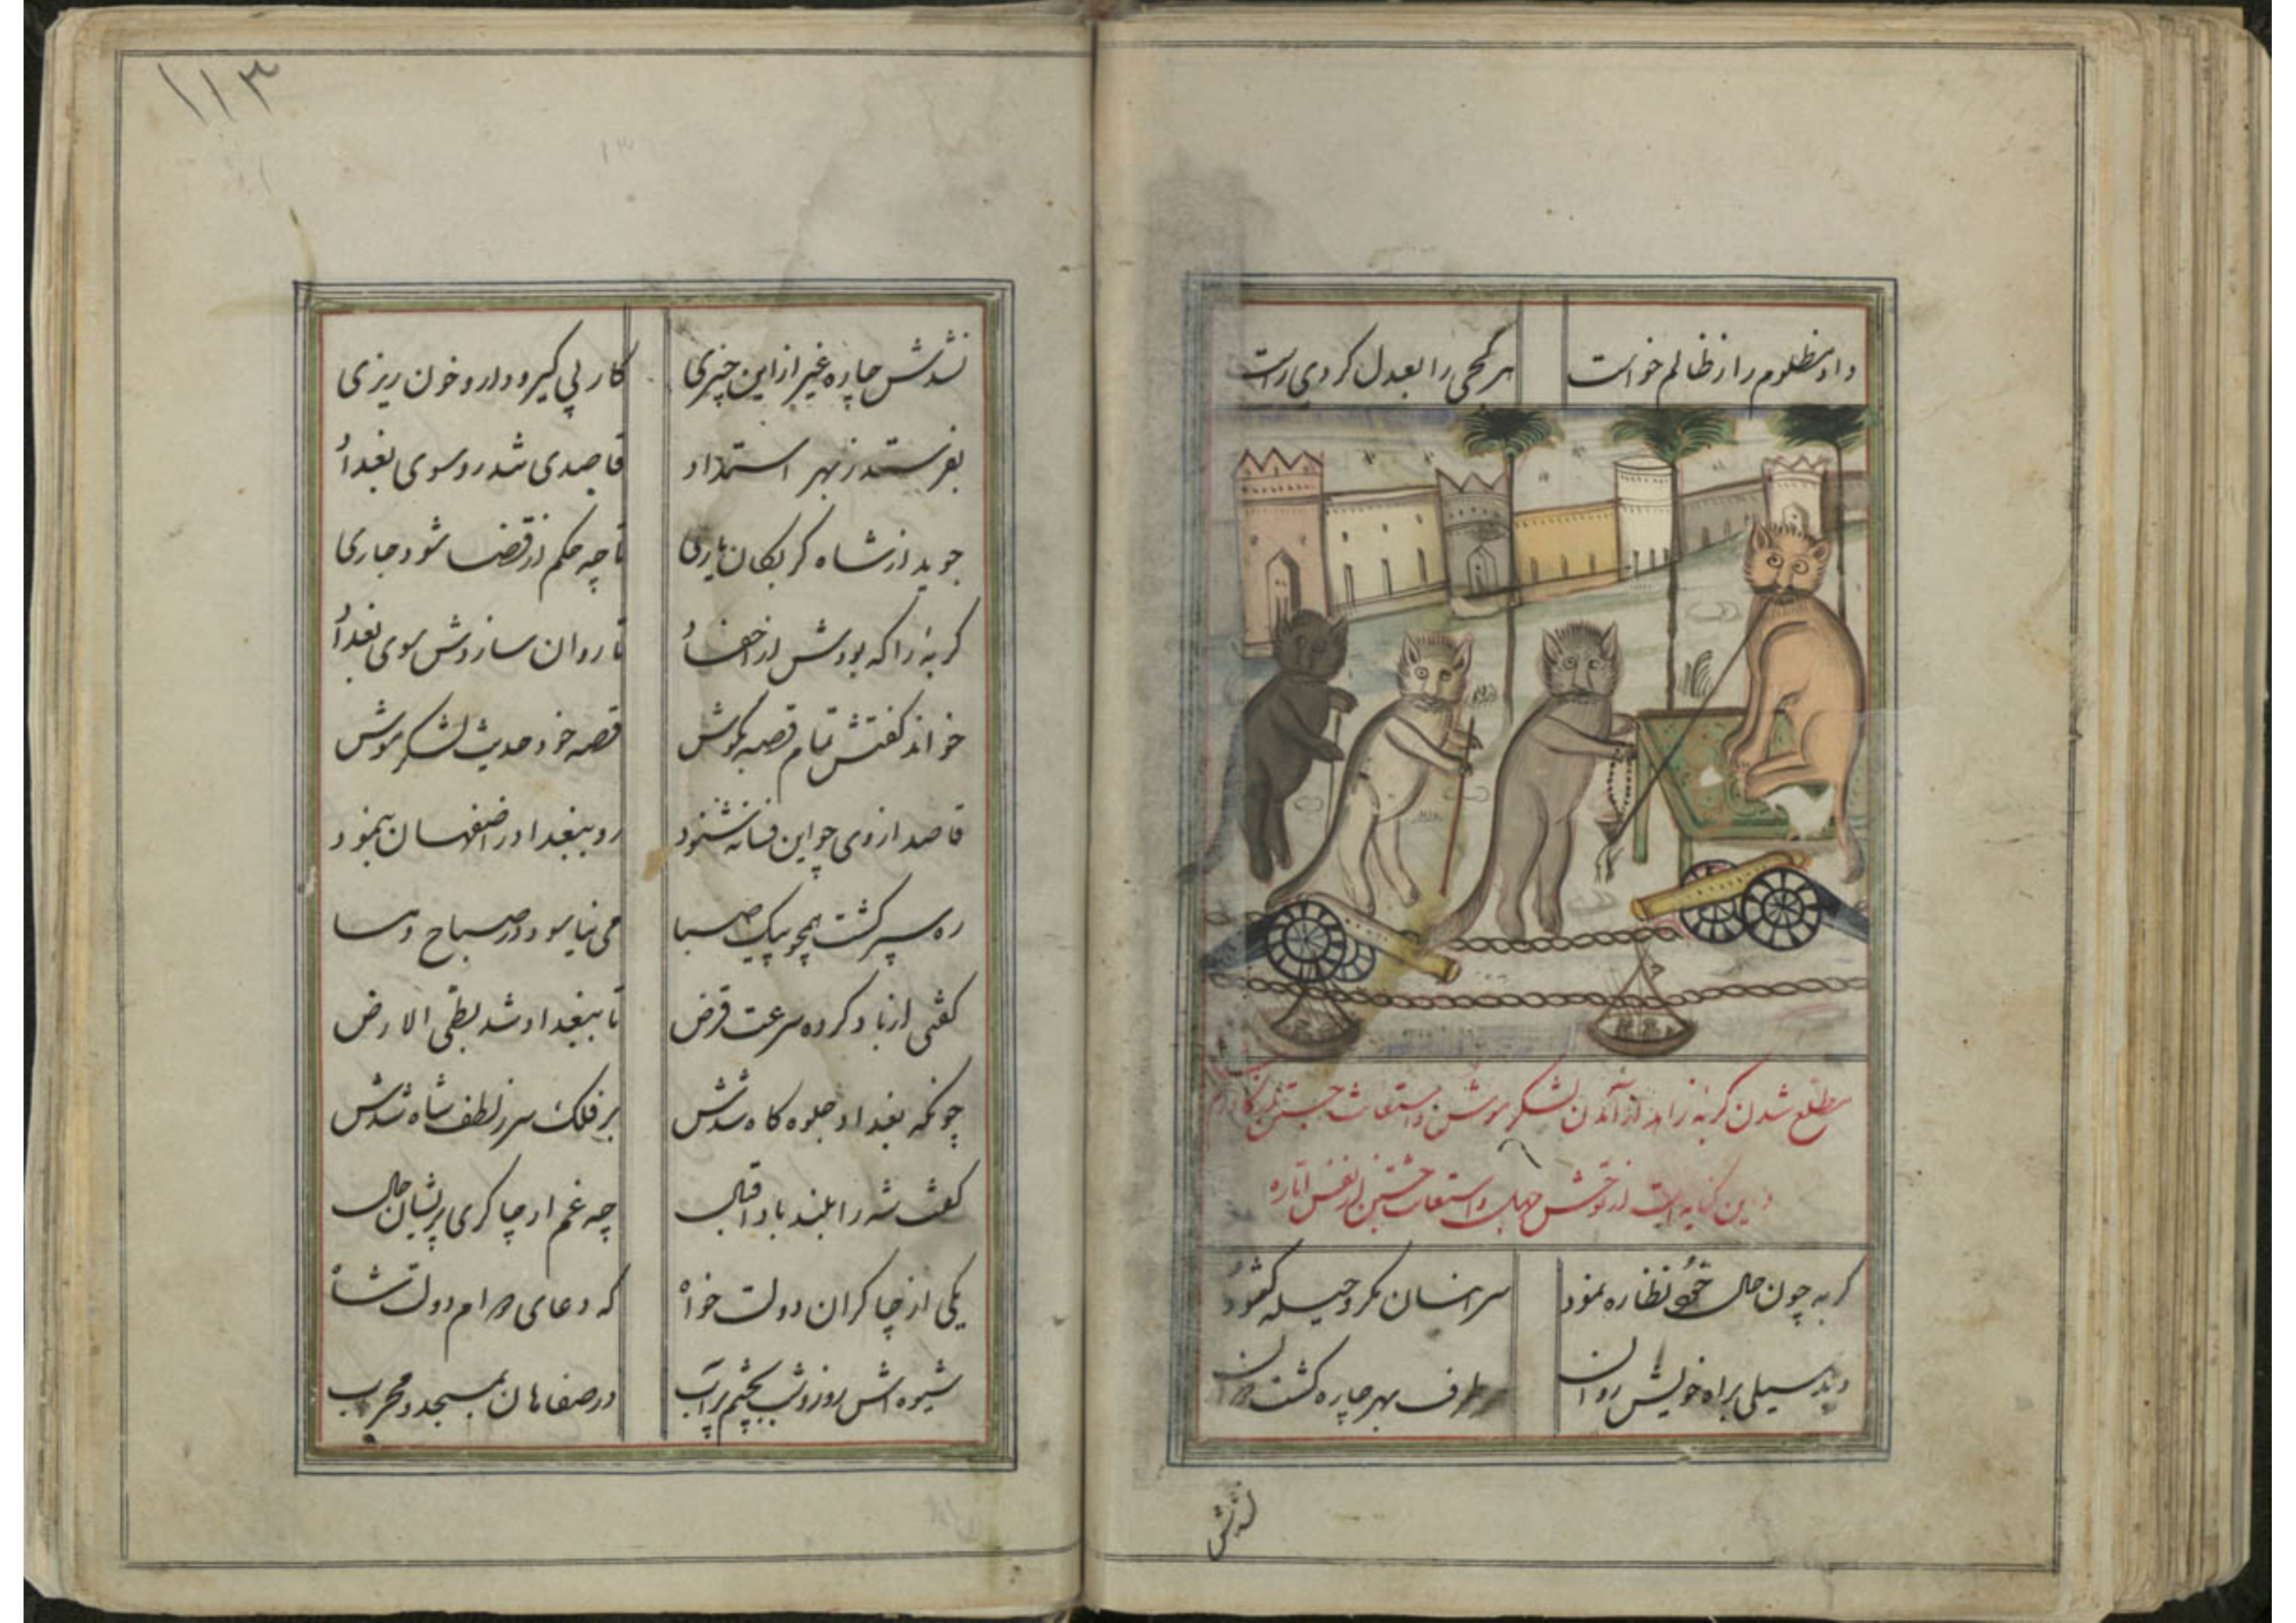 داد مظلوم را ز ظالم خواست
هر کجی را بعدل کردی راست
مطلع شدن کربهٔ زاهد از آمدن لشکر موش و استغاثه جستن
و این کنایه است از توحش جهل و استعانت جستن از نفس اماره
کربه چون حال نظاره نمود
سر انسان مکر و حیله کشود
دید سیلی براه خویش روان
طرف بهر چاره کشت
نشدش
۱۱۳
نشدش چاره غیر از این چیزی
کار پی کیرودار و خون ریزی
بفرستد ز بهر استمداد
قاصدی شد رو سوی بغداد
جوید از شاه کربکان یاری
تا چه حکم از قضا شود جاری
کربهٔ را که بودش از احفاد
تا روان سازدش سوی بغداد
خواند کفتش تمام قصه بکوش
قصه خود حدیث لشکر موش
قاصد از وی چو این فسانه شنود
رو ببغداد در اصفهان بنمود
ره سپر کشت همچو پیک صبا
می نیاسود در صباح و مسا
کفتی از باد کرده سرعت قرض
تا ببغداد شد بطی الارض
چونکه بغداد جلوه کاه شدش
بر فلک سر ز لطف شاه شدش
کفت شه را بلند باد اقبال
چه غم از چاکری پریشان حال
یکی از چاکران دولت خواه
که دعای دوام دولت شاه
شیوه اش روز و شب بچشم پر آب
در صفاهان بمسجد و محراب